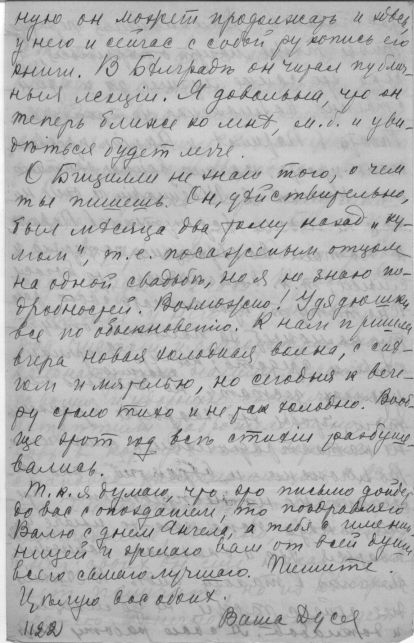 ную он может продолжать и здесь,
у него и сейчас с собой рукопись его
книги. В Бѣлградѣ он читал публич-
ныя лекціи. Я довольна, что он
теперь ближе ко мнѣ, м.б. и уви-
дѣться будет легче.
О Бицилли не знаю того, о чем
ты пишешь. Он, дѣйствительно,
был мѣсяца два тому назад „ку-
мом", т.е. посаженым отцом
на одной свадьбѣ, но я не знаю по-
дробностей. Возможно! У дядюшки
все по обыкновенію. К нам пришла
вчера новая холодная волна, с снѣ-
гом и мятелью, но сегодня к вече-
ру стало тихо и не так холодно. Вооб-
ще этот год всѣ стихіи разбуше-
вались.
Т.к. я думаю, что это письмо дойде
до вас с опозданіем, то поздравляю
Валю с днем Ангела, а тебя с именин-
ницей и желаю вам от всей души
всего самаго лучшаго. Пишите.
Цѣлую вас обоих.
Ваша Дуся
1122